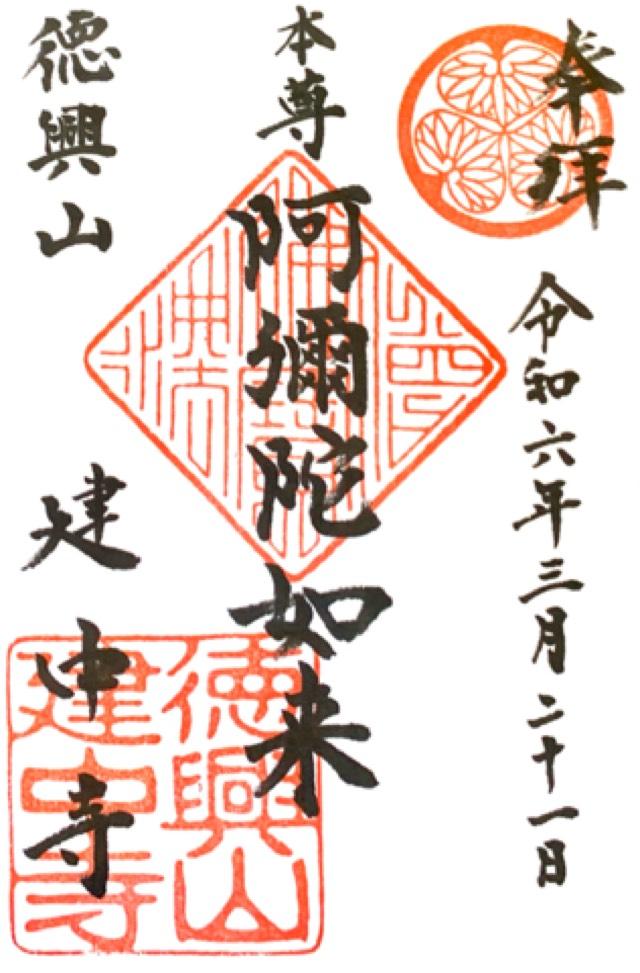 奉拝
令和六年三月二十一日
本尊
阿彌陀如来
德興山
建中寺
德興山
建中寺